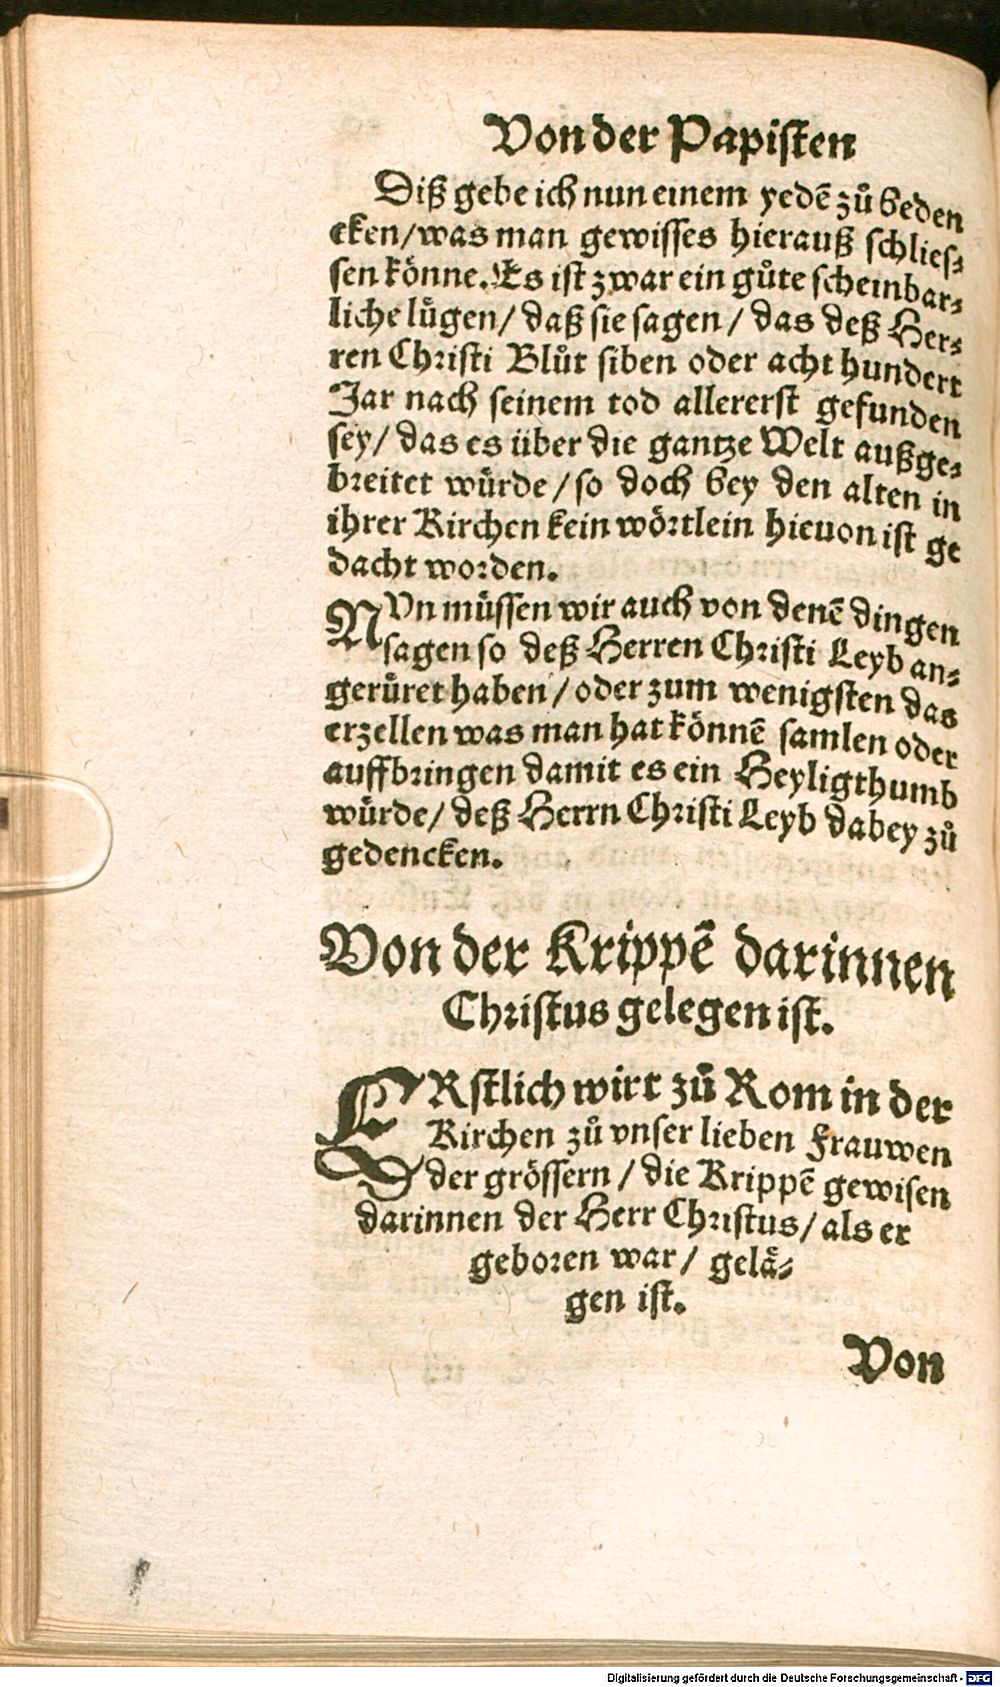 Von der Papisten
Diß gebe ich nun einem yedẽ zů beden
cken/was man gewisses hierauß schlies⸗
sen könne. Es ist zwar ein gůte scheinbar⸗
liche lügen/ daß sie sagen / das deß Her⸗
ren Christi Blůt siben oder acht hundert
Jar nach seinem tod allererst gefunden
sey/ das es über die gantze Welt außge⸗
breitet würde/so doch bey den alten in
ihrer Kirchen kein wörtlein hieuon ist ge
dacht worden.
NVn müssen wir auch von denẽ dingen
sagen so deß Herren Christi Leyb an⸗
gerüret haben/oder zum wenigsten das
erzellen was man hat könnẽ samlen oder
auffbringen damit es ein Heyligthumb
würde/ deß Herrn Christi Leyb dabey zů
gedencken.
Von der Krippẽ darinnen
Christus gelegen ist.
ERstlich wirt zů Rom in der
Kirchen zů vnser lieben Frauwen
der grössern / die Krippẽ gewisen
darinnen der Herr Christus/als er
geboren war/ gelä⸗
gen ist.
Von
Digitalisierung gefördert durch die Deutsche Forschungsgemeinschaft - DFG